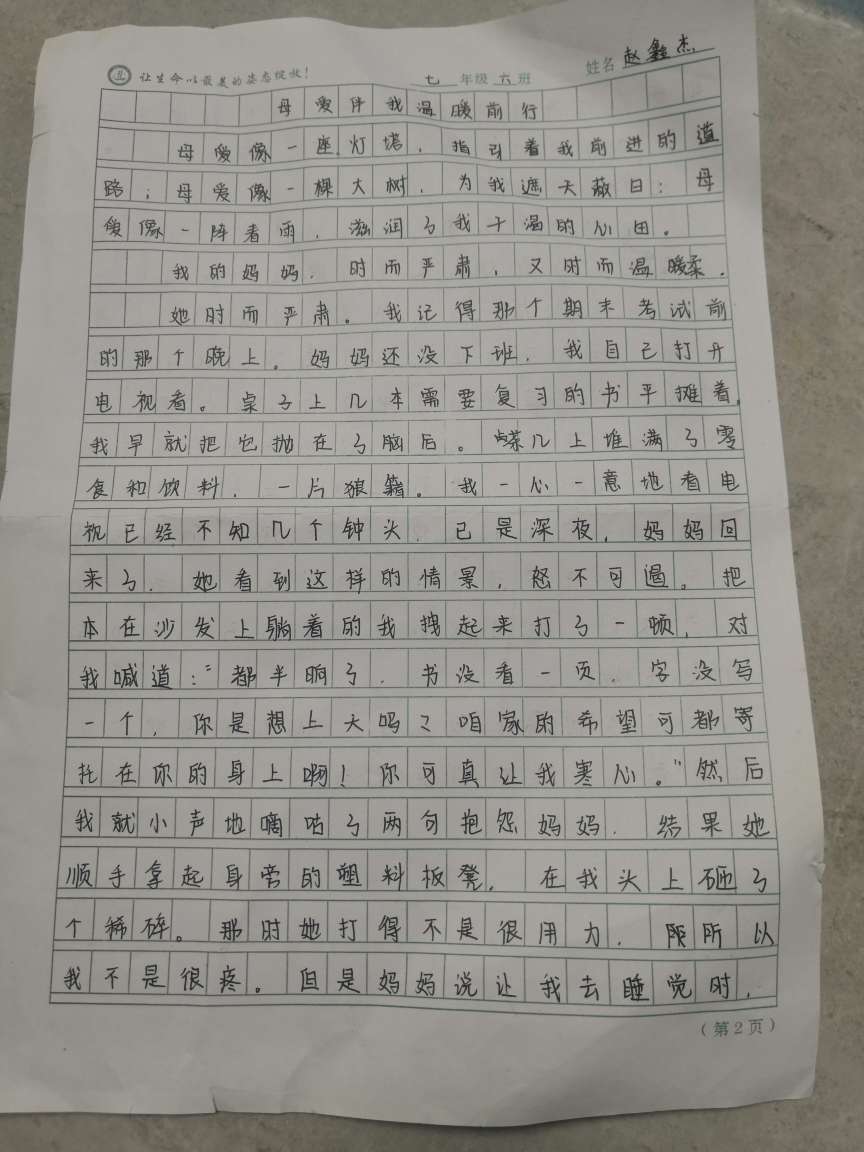 让生命以最美的姿态绽放！ 七 年级 六 班 姓名 赵鑫杰
母爱伴我温暖前行
母爱像一座灯塔，指引着我前进的道
路；母爱像一棵大树，为我遮天蔽日；母
爱像一阵春雨，滋润了我干渴的心田。
我的妈妈，时而严肃，又时而温暖柔。
她时而严肃。我记得那个期末考试前
的那个晚上。妈妈还没下班，我自己打开
电视看。桌子上几本需要复习的书平摊着，
我早就把它抛在了脑后。茶几上堆满了零
食和饮料，一片狼籍。我一心一意地看电
视已经不知几个钟头，已是深夜，妈妈回
来了，她看到这样的情景，怒不可遏。把
本在沙发上躺着的我拽起来打了一顿，对
我喊道：“都半晌了，书没看一页，字没写
一个，你是想上天吗？咱家的希望可都寄
托在你的身上啊！你可真让我寒心。”然后
我就小声地嘀咕了两句抱怨妈妈，结果她
顺手拿起身旁的塑料板凳，在我头上砸了
个稀碎。那时她打得不是很用力，所以
我不是很疼。但是妈妈说让我去睡觉时，
（第2页）